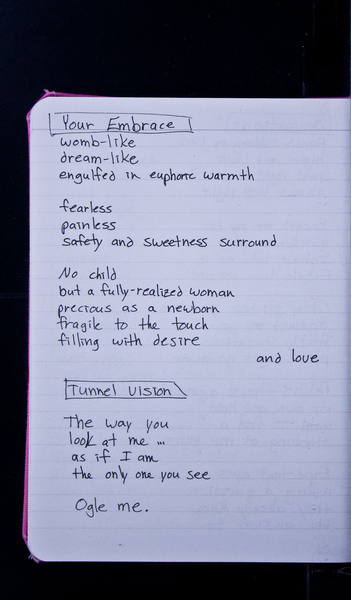 Your Embrace
womb-like
dream-like
engulfed in euphoric warmth
fearless
painless
safety and sweetness surround
No child
but a fully-realized woman
precious as a newborn
fragile to the touch
filling with desire
and love
Tunnel Vision
The way you
look at me ...
as if I am
the only one you see
Ogle me.